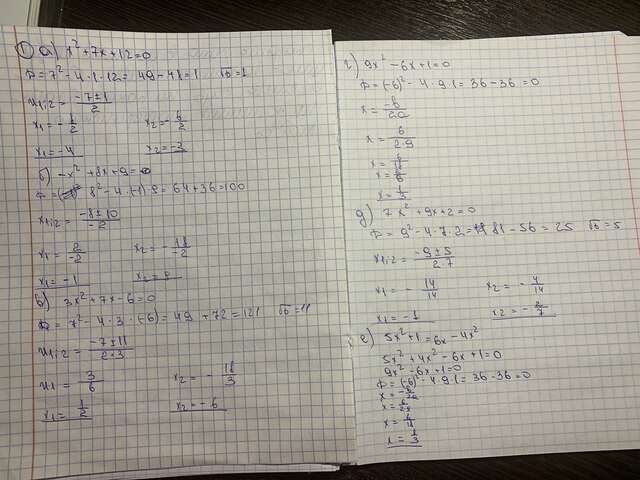 1) а) x² + 7x + 12 = 0
D = 7² - 4 · 1 · 12 = 49 - 48 = 1 √D = 1
x₁;₂ = (-7 ± 1)/2
x₁ = -8/2 x₂ = -6/2
x₁ = -4 x₂ = -3
б) -x² + 8x + 9 = 0
D = 8² - 4 · (-1) · 9 = 64 + 36 = 100
x₁;₂ = (-8 ± 10)/-2
x₁ = 2/-2 x₂ = -18/-2
x₁ = -1 x₂ = 9
в) 3x² + 7x - 6 = 0
D = 7² - 4 · 3 · (-6) = 49 + 72 = 121 √D = 11
x₁;₂ = (-7 ± 11)/(2·3)
x₁ = 3/6 x₂ = -18/3
x₁ = 1/2 x₂ = -6
г) 9x² - 6x + 1 = 0
D = (-6)² - 4 · 9 · 1 = 36 - 36 = 0
x = -b/2a
x = 6/(2·9)
x = 6/18
x = 1/3
д) 7x² + 9x + 2 = 0
D = 9² - 4 · 7 · 2 = 81 - 56 = 25 √D = 5
x₁;₂ = (-9 ± 5)/(2·7)
x₁ = -14/14 x₂ = -4/14
x₁ = -1 x₂ = -2/7
е) 5x² + 1 = 6x - 4x²
5x² + 4x² - 6x + 1 = 0
9x² - 6x + 1 = 0
D = (-6)² - 4 · 9 · 1 = 36 - 36 = 0
x = -b/2a
x = 6/18
x = 1/3